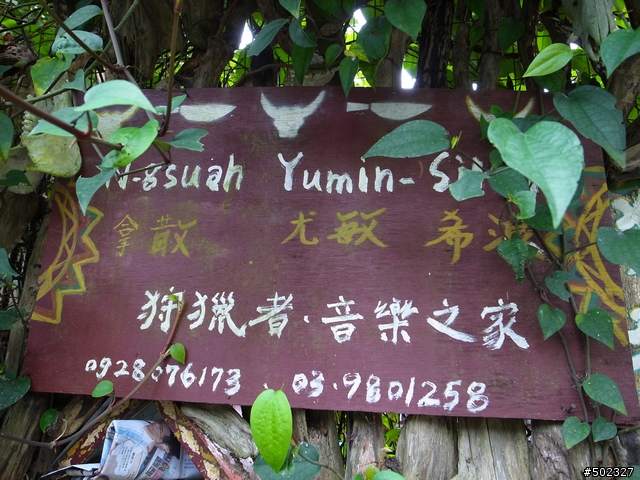 N-gsuah Yumin-
拿散 尤敏 希
狩獵者.音樂之家
0928076173、03.9801258
#502327